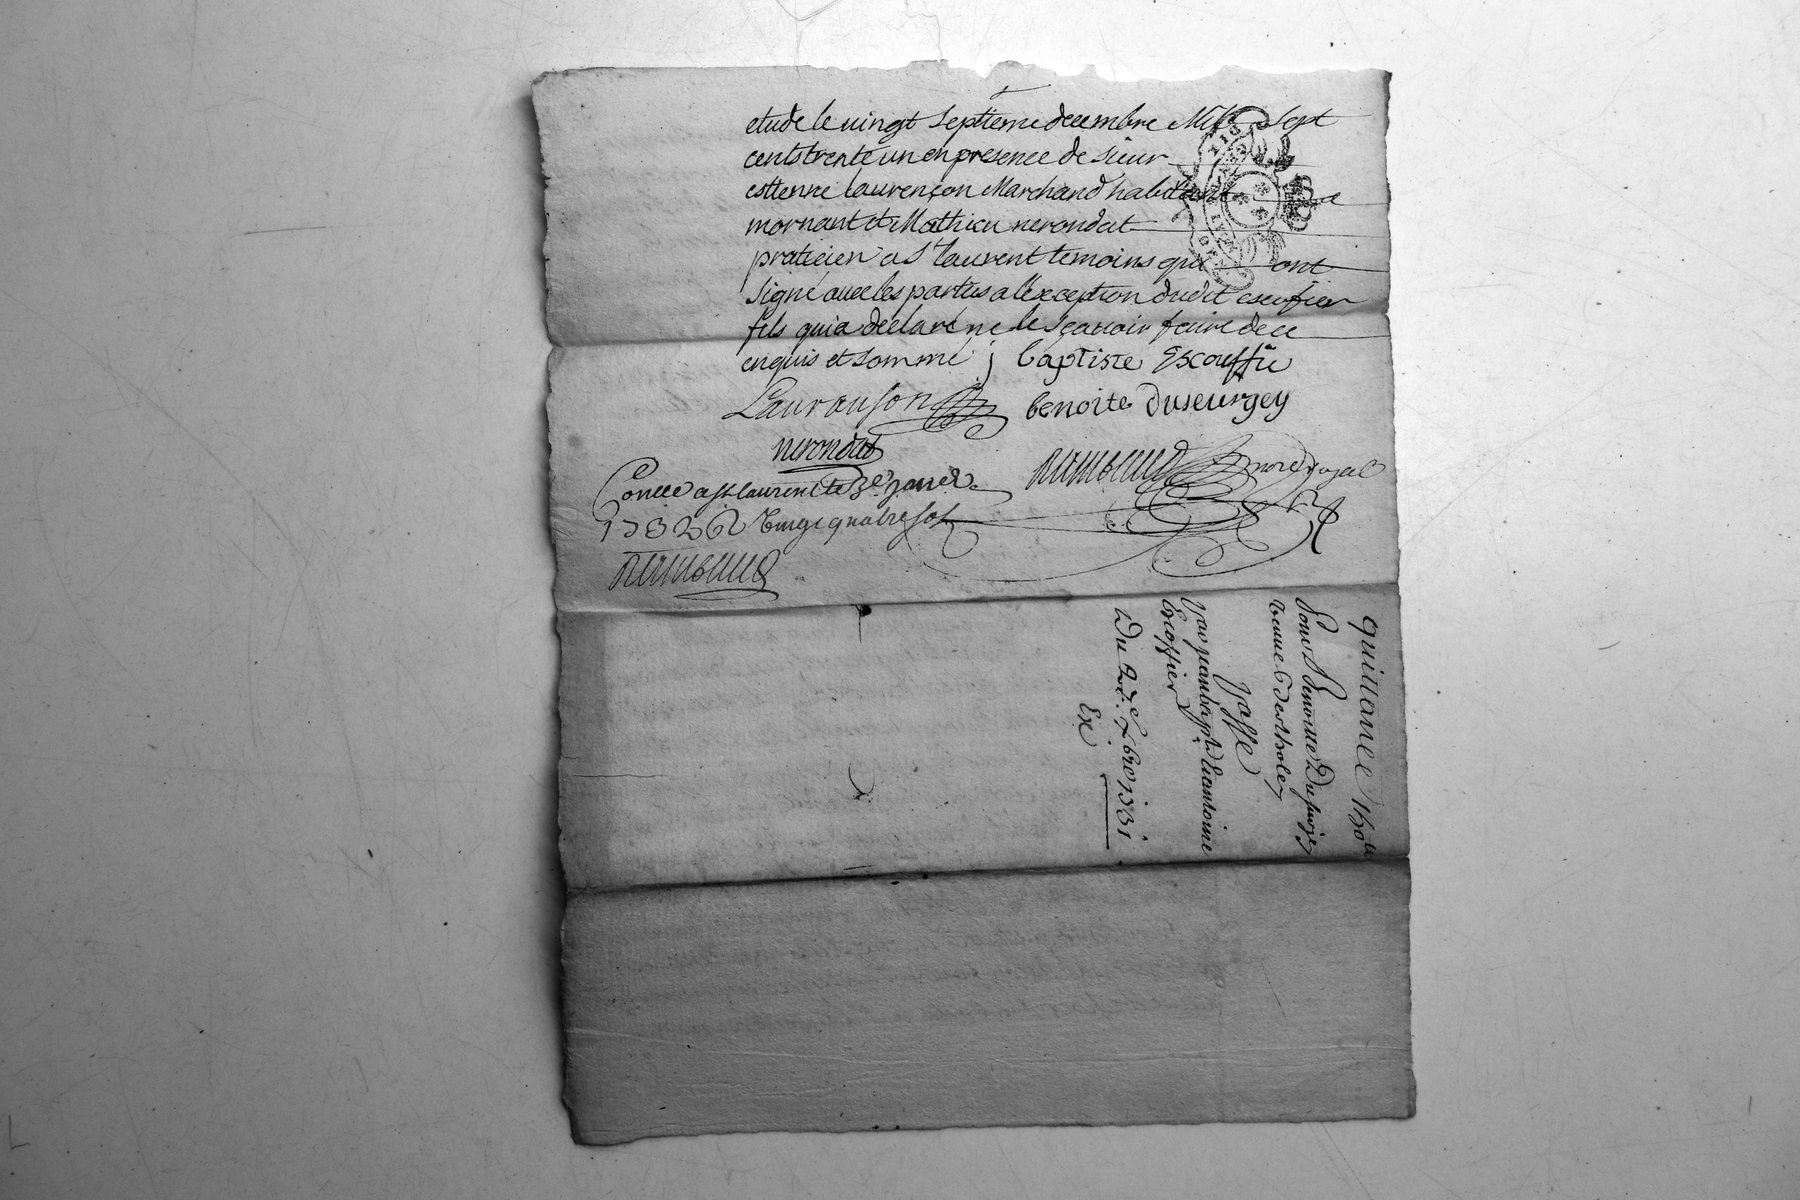 etude le vingt septieme decembre Mil sept
cents trente un en presence de sieur
estienne laurençon Marchand habitant
mornant et Mathieu nerondat
praticien a St laurent temoins qui ont
signé avec les parties a l'exception dudit escofier
fils qui a déclaré ne le sçavoir faire de ce
enquis et sommé j baptiste Escouffie
Lauranson benoite duseurgey
nerondat
Conllé a st laurent le 3e janer
1732 vingt quatre sols
nore royal
quittance 150tt
pour benoite
veuve
passe
par jean bapt. & antoine
Escoffier
Du 27e xbre 1731
Ex